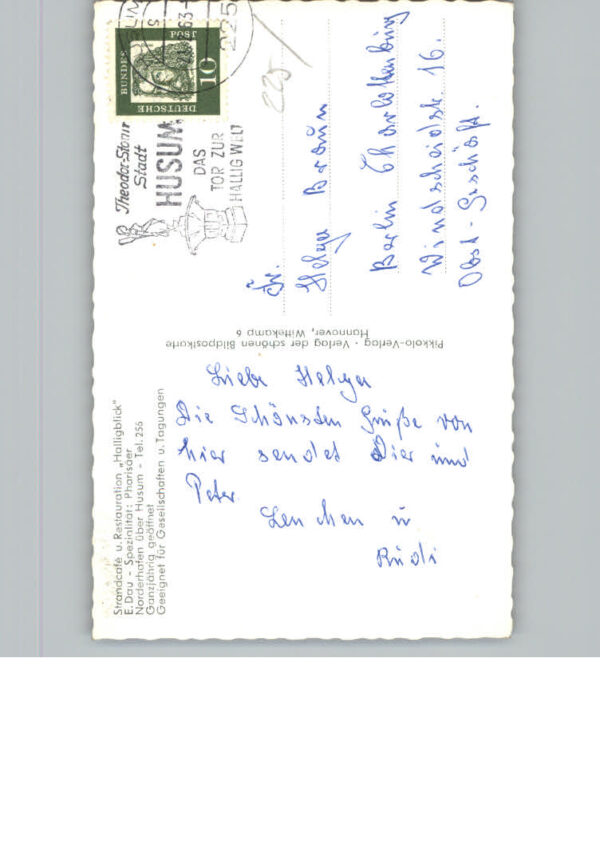 Strandcafé u. Restauration „Halligblick"
E. Dau - Spezialität: Pharisäer
Norderhafen über Husum - Tel. 256
Ganzjährig geöffnet
Geeignet für Gesellschaften u. Tagungen
Liebe Helga
Die Schönsten Grüße von
hier sendet Dier und
Peter
Lenchen u
Rudi
Pikkolo-Verlag · Verlag der schönen Bildpostkarte
Hannover, Wittekamp 6
Theodor-Storm
Stadt
HUSUM
DAS
TOR ZUR
HALLIG WELT
DEUTSCHE
BUNDES
10
63-
225
225
Fr.
Helga Braun
Berlin Charlottenburg
Windscheidstr 16.
Obst-Geschäft.